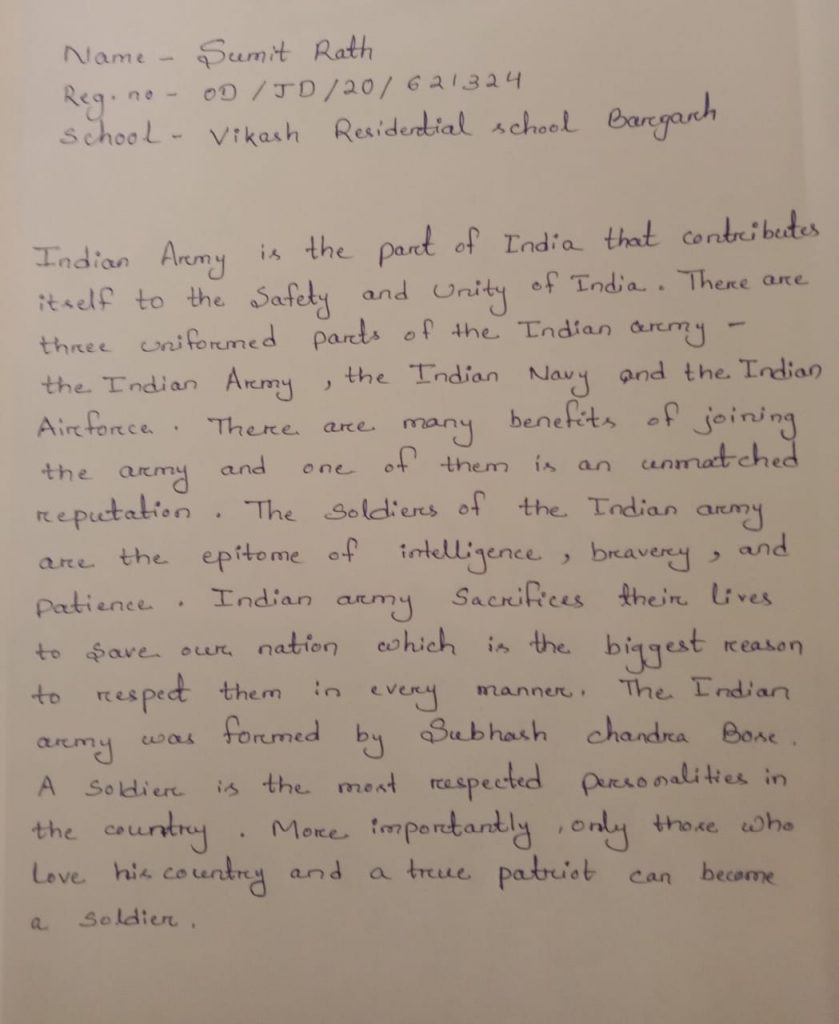 Name - Sumit Rath
Reg. no - OD / JD /20/ 621324
School - Vikash Residential school Bargarh
Indian Army is the part of India that contributes
itself to the Safety and Unity of India. There are
three uniformed parts of the Indian army -
the Indian Army, the Indian Navy and the Indian
Airforce. There are many benefits of joining
the army and one of them is an unmatched
reputation. The Soldiers of the Indian army
are the epitome of intelligence, bravery, and
Patience. Indian army Sacrifices their lives
to Save our nation which is the biggest reason
to respect them in every manner. The Indian
army was formed by Subhash chandra Bose.
A Soldier is the most respected personalities in
the country. More importantly, only those who
Love his country and a true patriot can become
a Soldier.